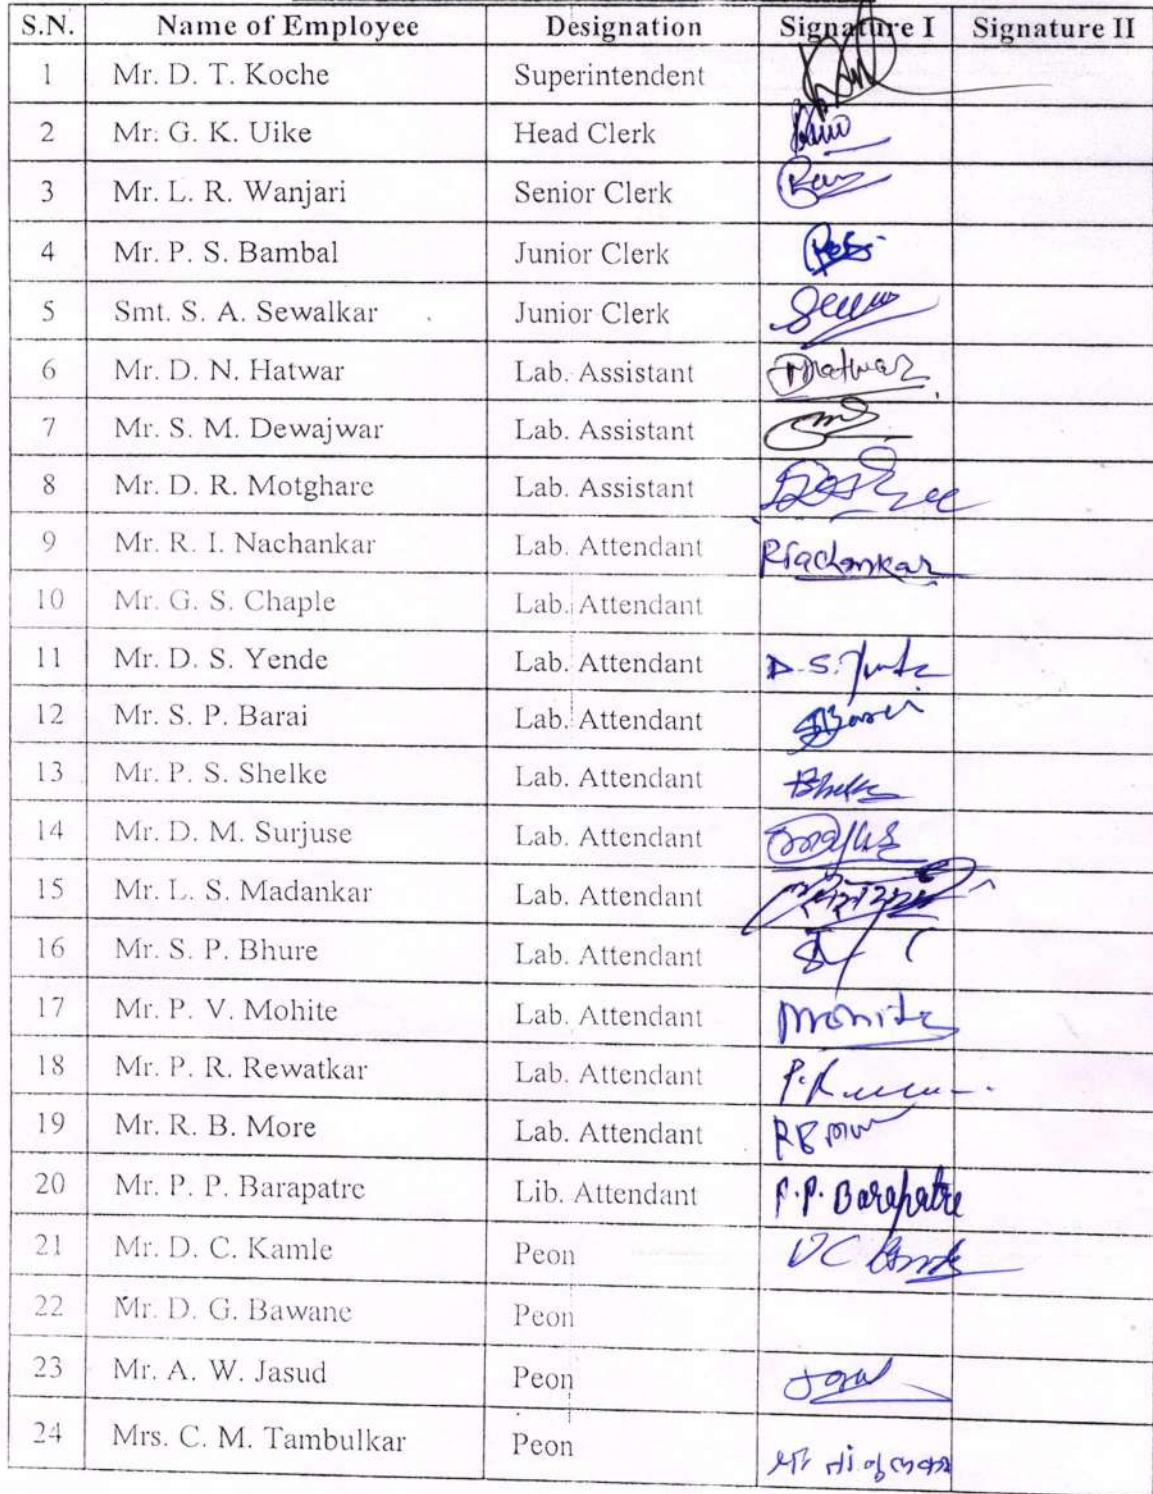 S.N. Name of Employee Designation Signature I Signature II
1 Mr. D. T. Koche Superintendent
2 Mr. G. K. Uike Head Clerk
3 Mr. L. R. Wanjari Senior Clerk
4 Mr. P. S. Bambal Junior Clerk
5 Smt. S. A. Sewalkar Junior Clerk
6 Mr. D. N. Hatwar Lab. Assistant
7 Mr. S. M. Dewajwar Lab. Assistant
8 Mr. D. R. Motghare Lab. Assistant
9 Mr. R. I. Nachankar Lab. Attendant
10 Mr. G. S. Chaple Lab. Attendant
11 Mr. D. S. Yende Lab. Attendant D. S. Yende
12 Mr. S. P. Barai Lab. Attendant
13 Mr. P. S. Shelke Lab. Attendant
14 Mr. D. M. Surjuse Lab. Attendant
15 Mr. L. S. Madankar Lab. Attendant
16 Mr. S. P. Bhure Lab. Attendant
17 Mr. P. V. Mohite Lab. Attendant Mohite
18 Mr. P. R. Rewatkar Lab. Attendant
19 Mr. R. B. More Lab. Attendant
20 Mr. P. P. Barapatre Lib. Attendant P.P. Barapatre
21 Mr. D. C. Kamle Peon
22 Mr. D. G. Bawane Peon
23 Mr. A. W. Jasud Peon
24 Mrs. C. M. Tambulkar Peon